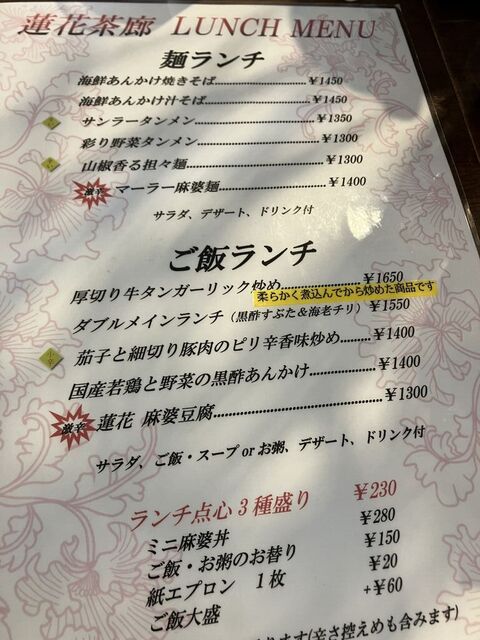 蓮花茶廊 LUNCH MENU
麺ランチ
海鮮あんかけ焼きそば…………¥1450
海鮮あんかけ汁そば…………¥1450
サンラータンメン…………¥1350
彩り野菜タンメン…………¥1300
山椒香る担々麺…………¥1300
激辛 マーラー麻婆麺…………¥1400
サラダ、デザート、ドリンク付
ご飯ランチ
厚切り牛タンガーリック炒め…………¥1650
柔らかく煮込んでから炒めた商品です
ダブルメインランチ（黒酢すぶた＆海老チリ）¥1550
茄子と細切り豚肉のピリ辛香味炒め…………¥1400
国産若鶏と野菜の黒酢あんかけ…………¥1400
激辛 蓮花 麻婆豆腐…………¥1300
サラダ、ご飯・スープ or お粥、デザート、ドリンク付
ランチ点心3種盛り ¥230
ミニ麻婆丼 ¥280
ご飯・お粥のお替り ¥150
紙エプロン 1枚 ¥20
ご飯大盛 +¥60
ります(辛さ控えめも含みます)